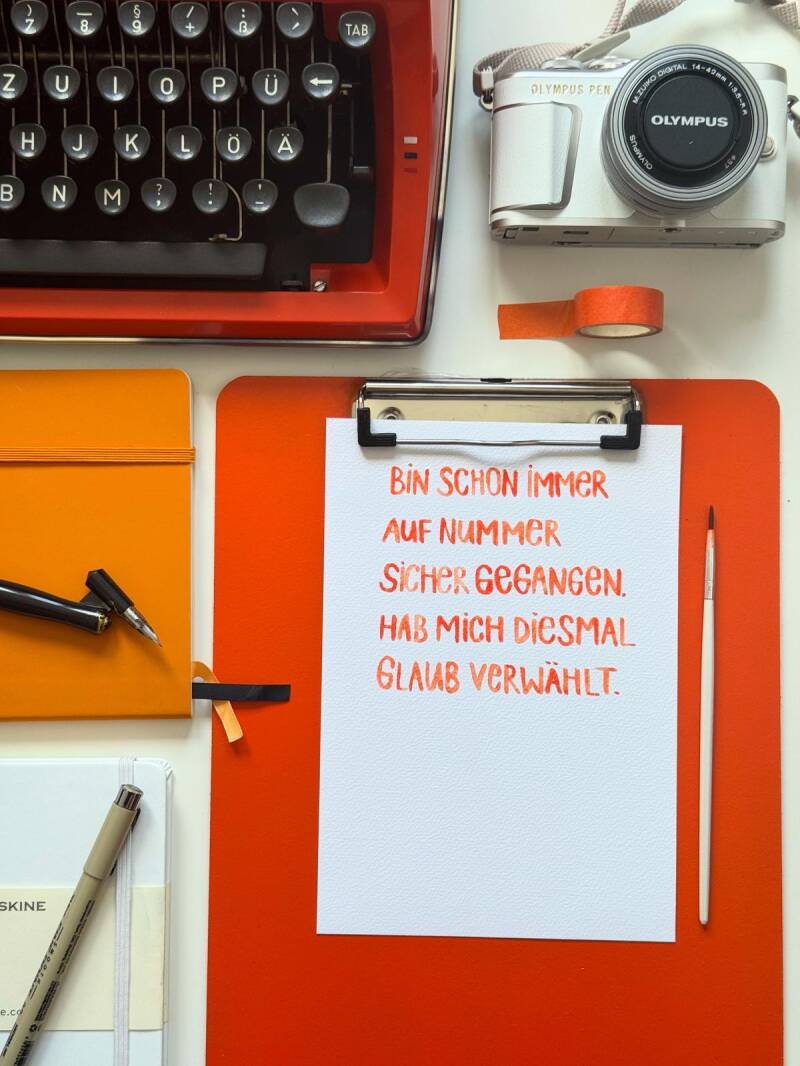 2 _ 8 § 9 / + : ß ` ´ TAB
Z U I O P Ü ←
H J K L Ö Ä
B N M ? ; ! . ' -
OLYMPUS PEN
M.ZUIKO DIGITAL 14-42mm 1:3.5-5.6
OLYMPUS
OLYMPUS
BiN SCHON iMMER
AUF NUMMER
SiCHER GEGANGEN.
HAB MiCH DiESMAL
GLAUB VERWÄHLT.
SKINE